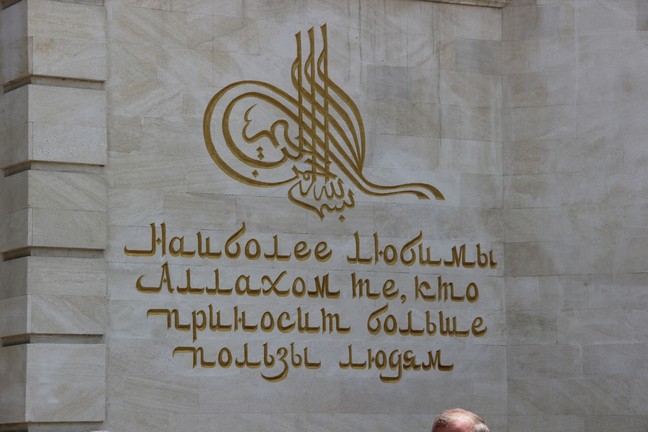 بسم الله الرحمن الرحيم
Наиболее Любимы
Аллахом те, кто
приносит больше
пользы людям